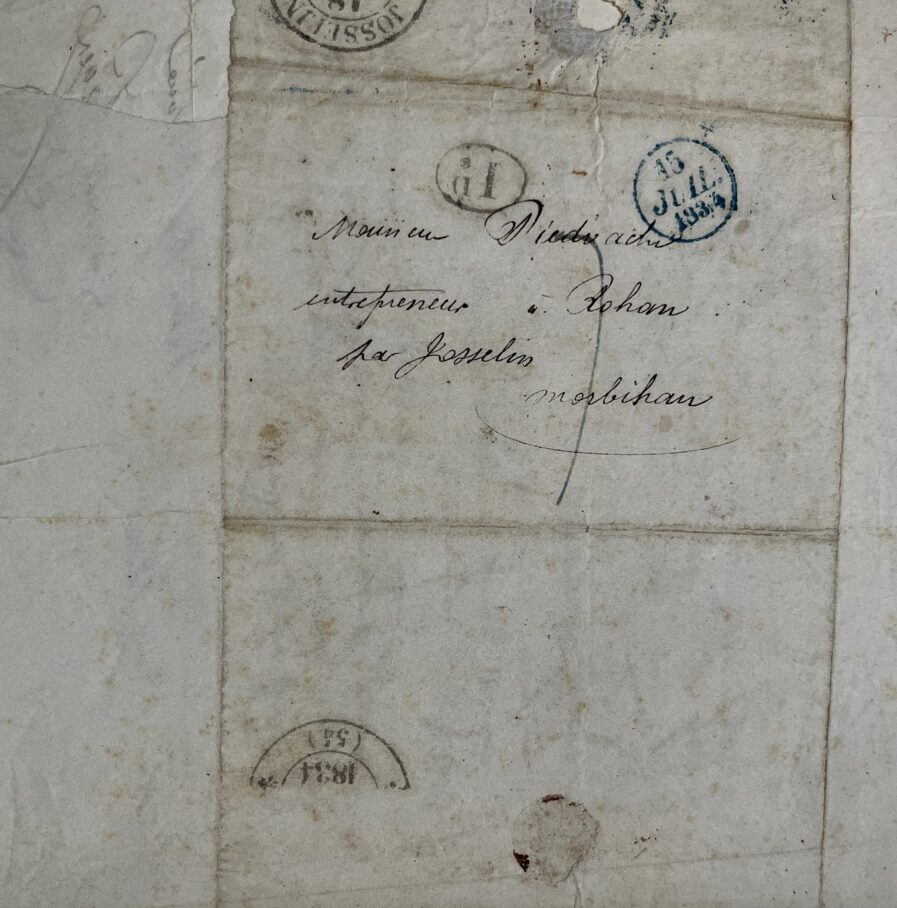 18
JOSSELIN
15
JUIL.
1834
Monsieur Piedvache
entrepreneur à Rohan
par Josselin
morbihan
(54)
1834